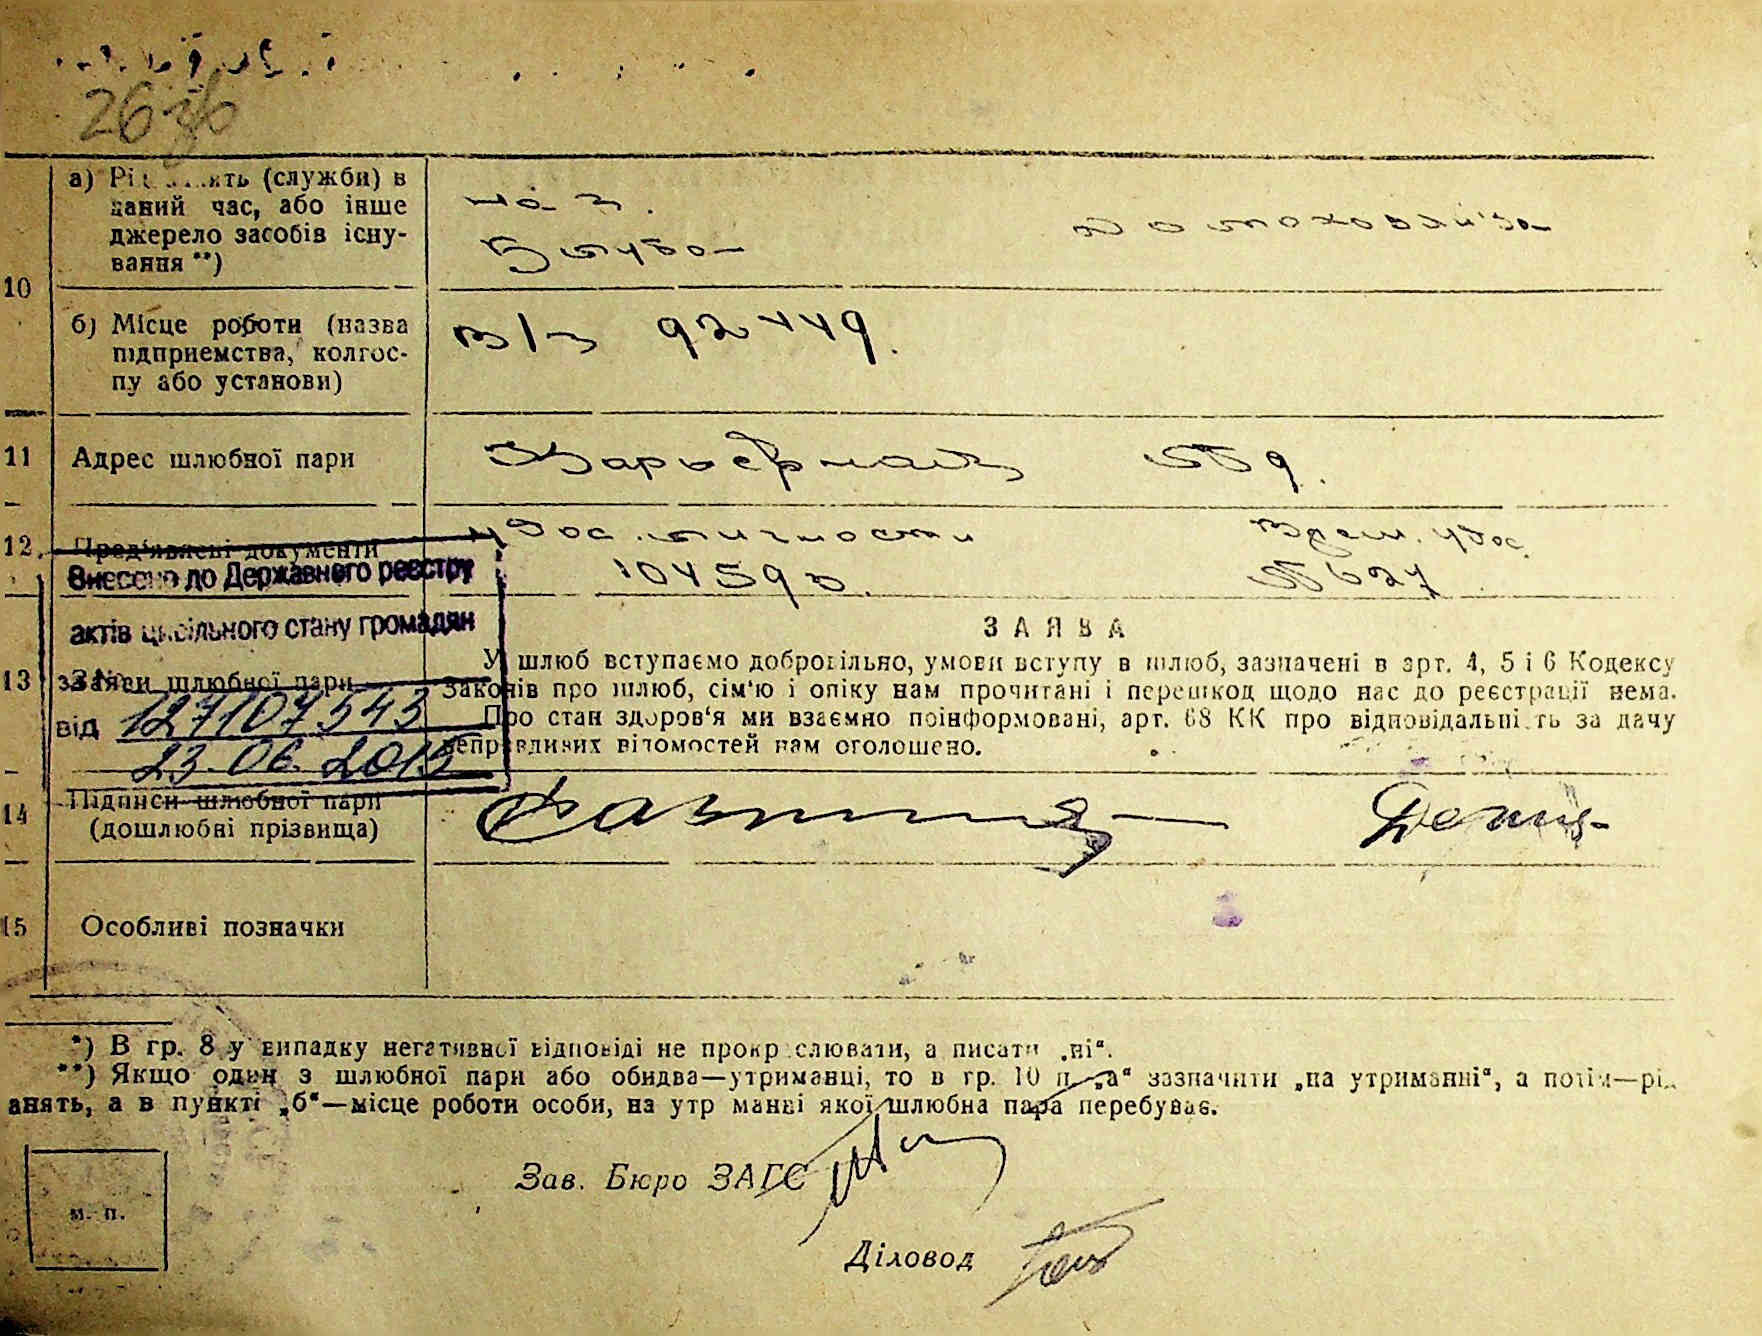 26 зв
а) Рід занять (служби) в
даний час, або інше
джерело засобів існу-
вання **)
нач.
домохозяйка
10
б) Місце роботи (назва
підприємства, колгос-
пу або установи)
в/ч 92449.
11 Адрес шлюбної пари
Карьерная
12. Пред'явлені документи
удос. личности
Врем. удос.
104590
Внесено до Державного реєстру
актів цивільного стану громадян
ЗАЯВА
13 Заяви шлюбної пари
У шлюб вступаємо добровільно, умови вступу в шлюб, зазначені в арт. 4, 5 і 6 Кодексу
Законів про шлюб, сім'ю і опіку нам прочитані і перешкод щодо нас до реєстрації нема.
за №
від 127107543
Про стан здоров'я ми взаємно поінформовані, арт. 68 КК про відповідальність за дачу
неправдивих відомостей нам оголошено.
23.06.2015
14 Підписи шлюбної пари
(дошлюбні прізвища)
15 Особливі позначки
*) В гр. 8 у випадку негативної відповіді не прокреслювати, а писати „ні“.
**) Якщо один з шлюбної пари або обидва—утриманці, то в гр. 10 п. „а“ зазначити „на утриманні“, а потім—рід
анять, а в пункті „б“—місце роботи особи, на утриманні якої шлюбна пара перебуває.
Зав. Бюро ЗАГС
м. п.
Діловод